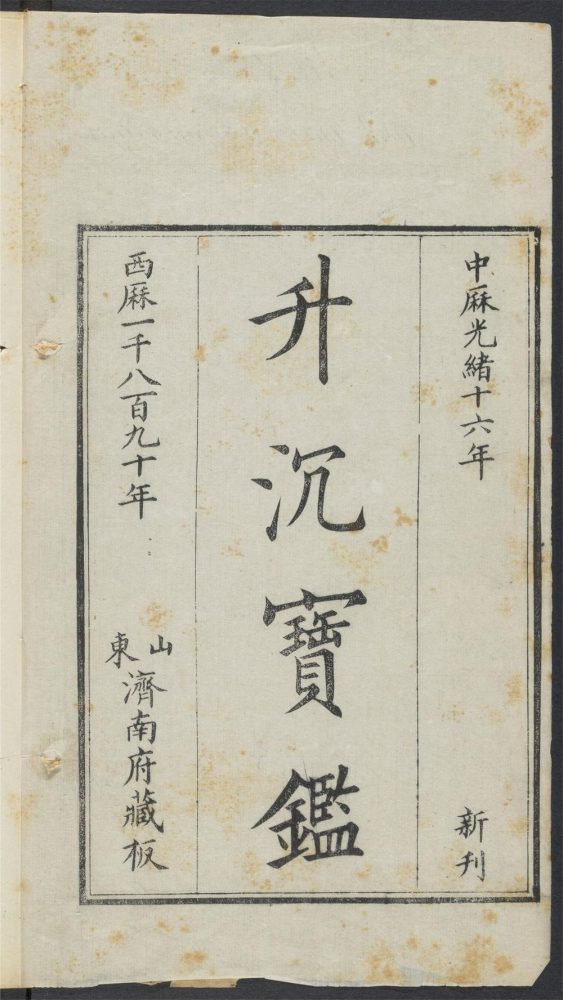 中厤光緒十六年 新刊
升沉寶鑑
西厤一千八百九十年 山東濟南府藏板